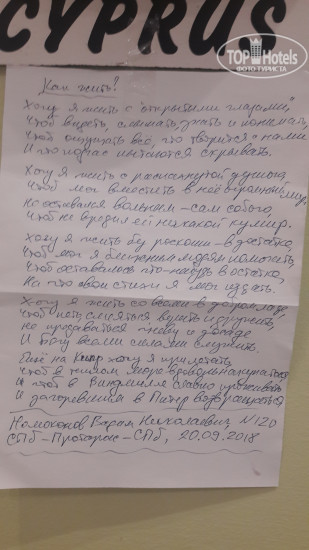 CYPRUS
TOPHotels
ФОТО ТУРИСТА
Как жить?
Хочу я жить с открытыми глазами,
Чтоб видеть, слышать, знать и понимать,
Чтоб ощущать всё, что творится с нами
И что от нас пытаются скрывать.
Хочу я жить с распахнутой душою,
Чтоб мог вместить в неё огромный мир,
Но оставался вольным – сам собою,
Чтоб не вредил ей никакой кумир.
Хочу я жить без роскоши – в достатке,
Чтоб мог я ближним людям помогать,
Чтоб оставалось что-нибудь в остатке,
На что свои стихи я мог издать.
Хочу я жить со всеми в
Чтоб петь, смеяться
не предаваться гневу и досаде
И всеми силами служить.
Ещё на Кипр хочу я прилетать,
Чтоб в море
И чтоб в Виндмилле славно проживать
И загоревшим в Питер возвращаться
Николаевич N120
СПб – Протарас – СПб, 20.09.2018